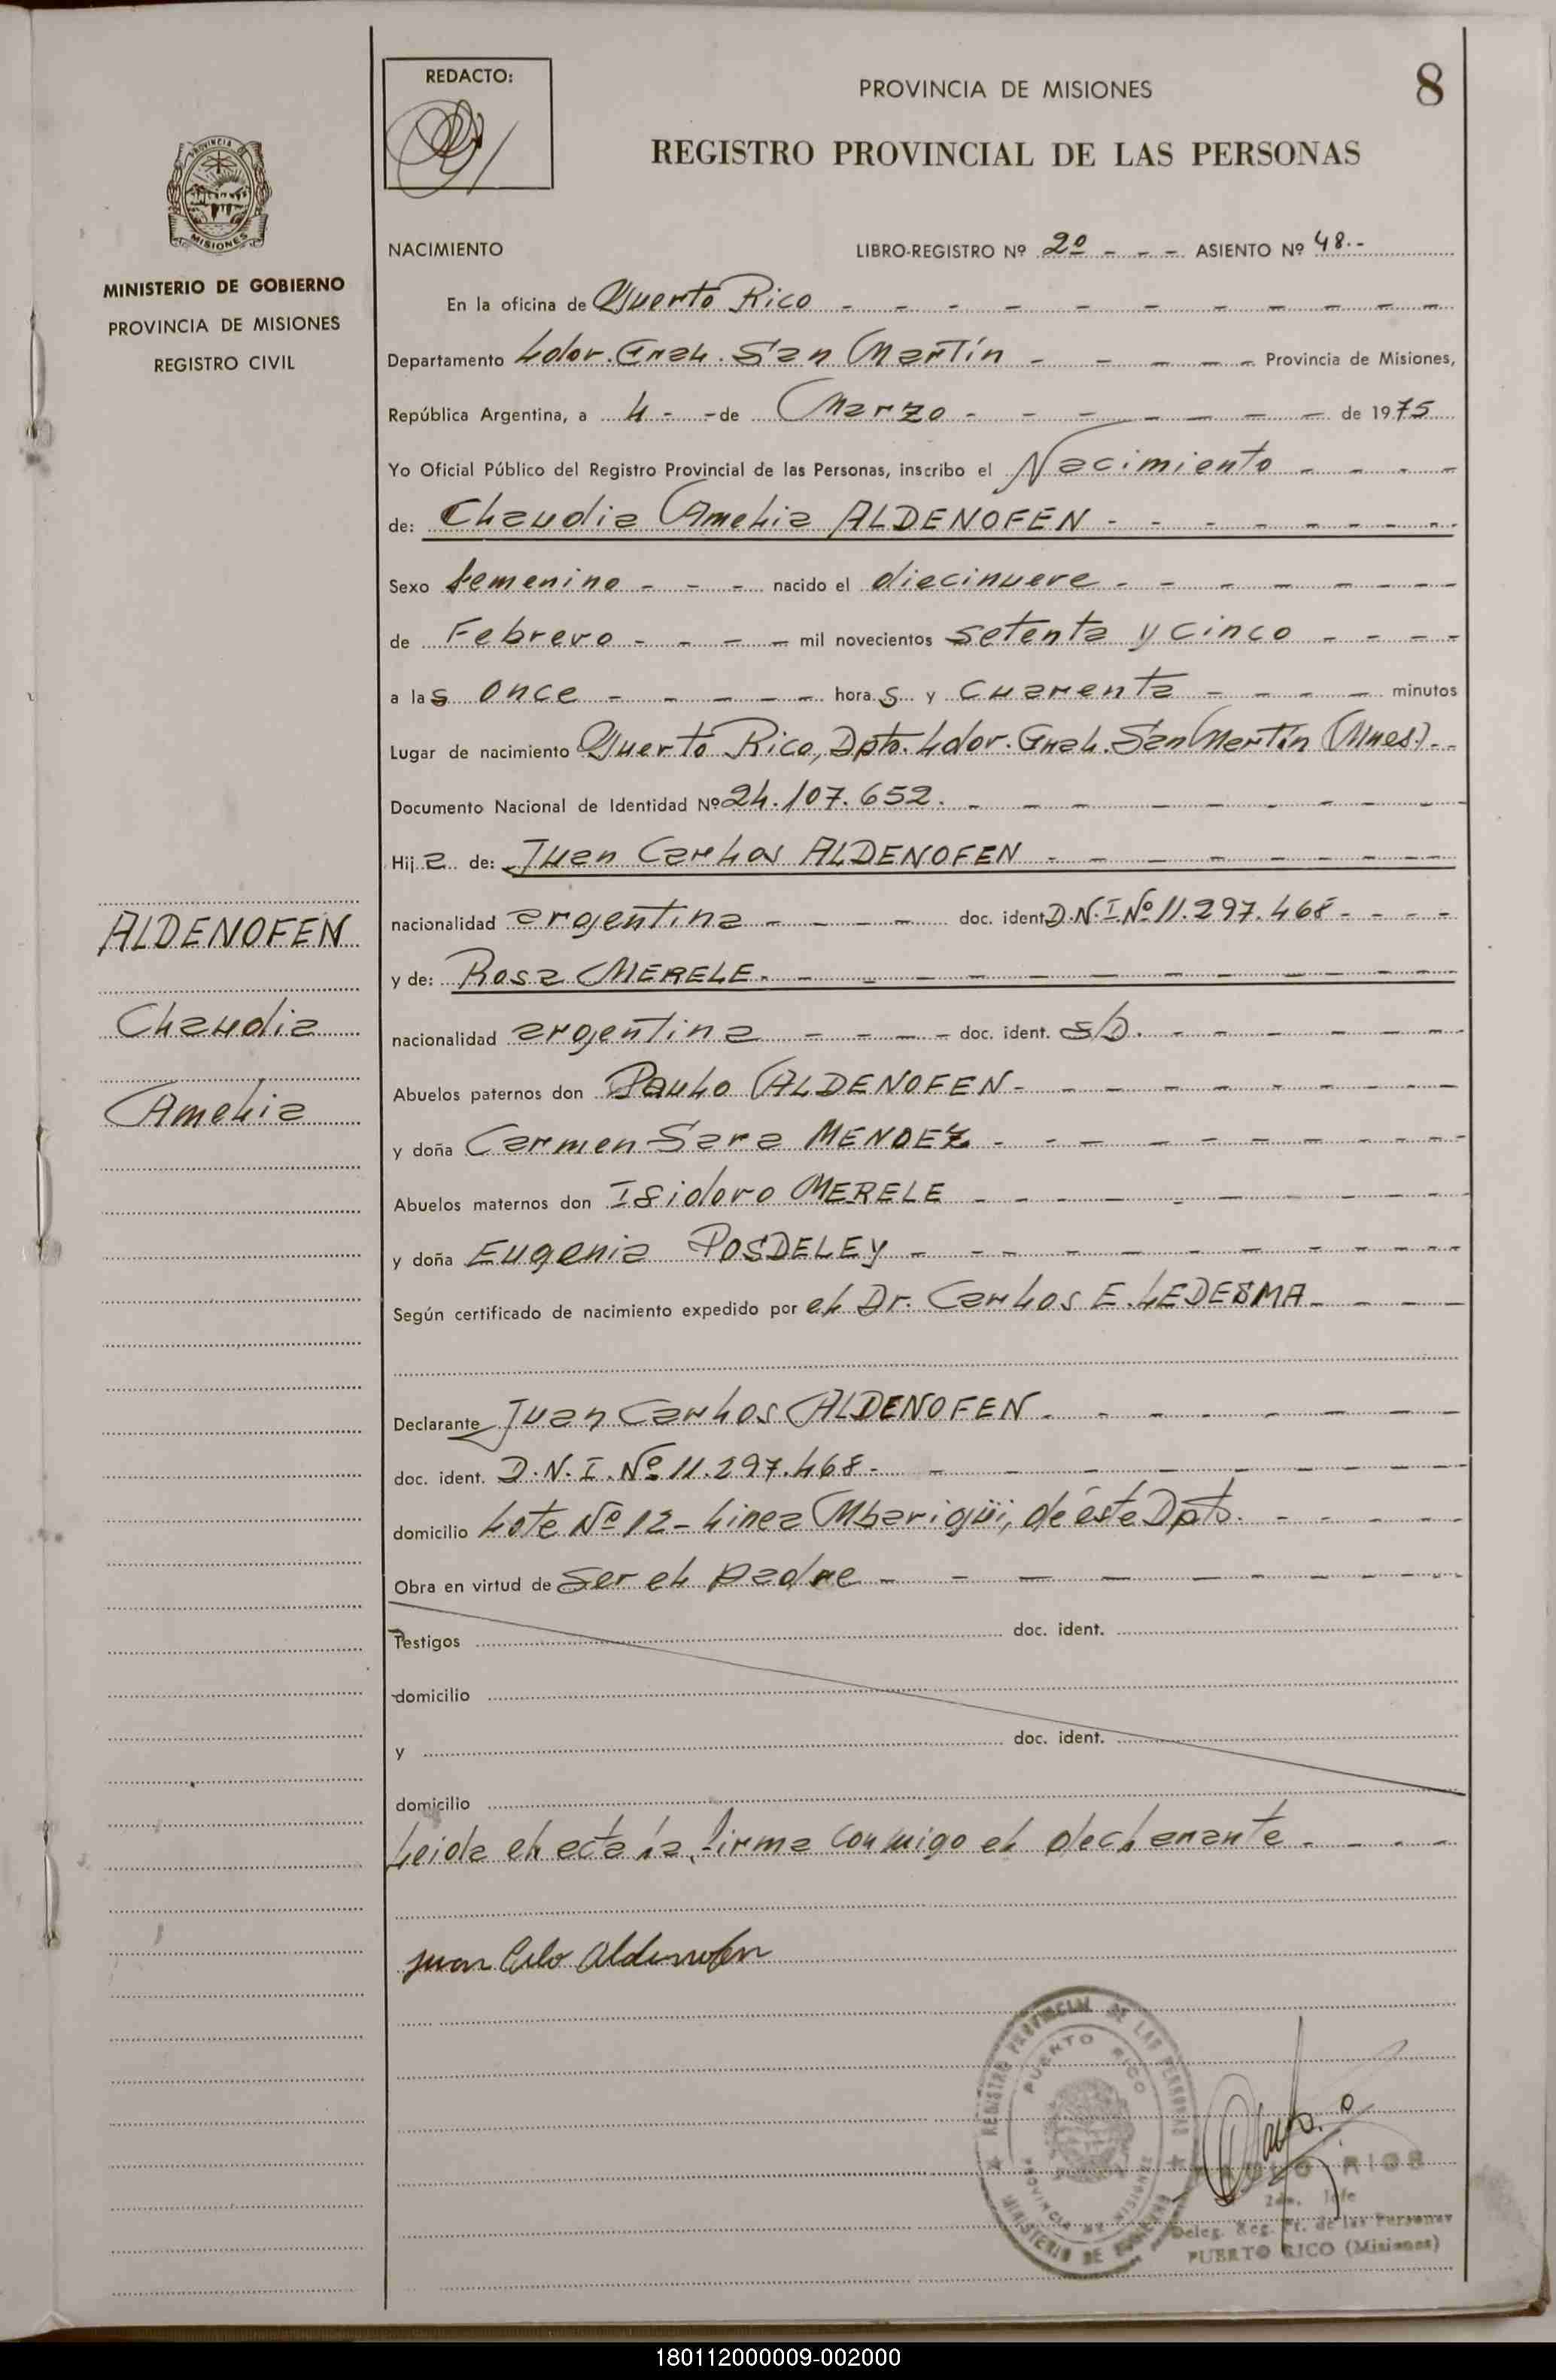 REDACTO:
PROVINCIA DE MISIONES
8
REGISTRO PROVINCIAL DE LAS PERSONAS
PROVINCIA DE
MISIONES
MINISTERIO DE GOBIERNO
PROVINCIA DE MISIONES
REGISTRO CIVIL
NACIMIENTO LIBRO-REGISTRO Nº 2º - - - ASIENTO Nº 48.-
En la oficina de Puerto Rico - - - - - - - - - -
Departamento Ldor. Gral. San Martín - - - - - Provincia de Misiones,
República Argentina, a 4 - - de Marzo - - - - - - - de 1975
Yo Oficial Público del Registro Provincial de las Personas, inscribo el Nacimiento - - - -
de: Claudia Amelia ALDENOFEN - - - - - - - -
Sexo femenino - - - nacido el diecinueve - - - - - - - -
de Febrero - - - - mil novecientos setenta y cinco - - - -
a las once - - - - - - horas y cuarenta - - - - minutos
Lugar de nacimiento Puerto Rico, Dpto. Ldor. Gral. San Martín (Mnes). - -
Documento Nacional de Identidad Nº 24.107.652. - - - - - - - - -
Hija de: Juan Carlos ALDENOFEN - - - - - - - -
nacionalidad argentina - - - - doc. ident. D.N.I. Nº 11.297.468 - - - -
y de: Rosa MERELE. - - - - - - - - - -
nacionalidad argentina - - - - doc. ident. s/D. - - - - - - -
Abuelos paternos don Paulo ALDENOFEN - - - - - - - - -
y doña Carmen Sara MENDEZ - - - - - - - - - -
Abuelos maternos don Isidoro MERELE - - - - - - - - -
y doña Eugenia POSDELEY - - - - - - - - - -
Según certificado de nacimiento expedido por el Dr. Carlos E. LEDESMA - - - -
Declarante Juan Carlos ALDENOFEN. - - - - - - -
doc. ident. D.N.I. Nº 11.297.468 - - - - - - - - -
domicilio Lote Nº 12 - Linea Mbarigüi, de éste Dpto. - - - - -
Obra en virtud de ser el padre - - - - - - - - -
Testigos doc. ident.
domicilio
y doc. ident.
domicilio
Leida el acta la firma conmigo el declarante - - - -
ALDENOFEN
Claudia
Amelia
Juan Aldenofen
REGISTRO PROVINCIAL DE LAS PERSONAS
PUERTO RICO
PROVINCIA DE MISIONES
MINISTERIO DE GOBIERNO
RIOS
2do. Jefe
Deleg. Reg. Pr. de las Personas
PUERTO RICO (Misiones)
180112000009-002000